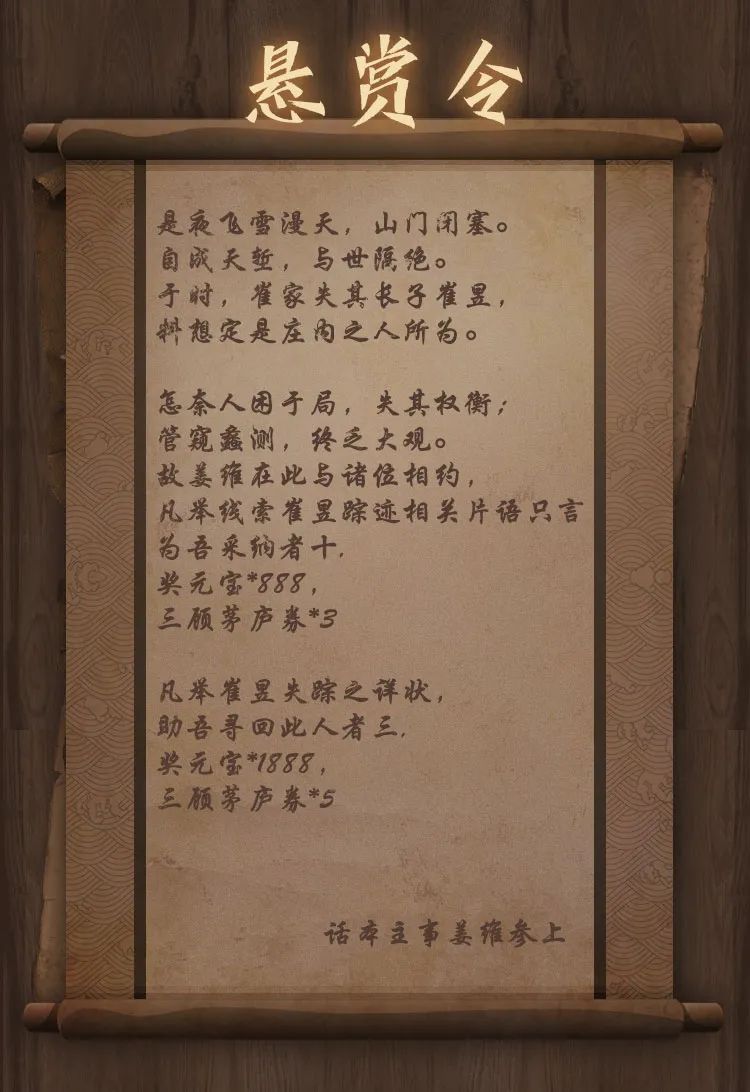 悬赏令
是夜飞雪漫天，山门闭塞。
自成天堑，与世隔绝。
于时，崔家失其长子崔昱，
料想定是庄内之人所为。
怎奈人困于局，失其权衡；
管窥蠡测，终乏大观。
故姜维在此与诸位相约，
凡举线索崔昱踪迹相关片语只言
为吾采纳者十.
奖元宝*888，
三顾茅庐券*3
凡举崔昱失踪之详状，
助吾寻回此人者三.
奖元宝*1888，
三顾茅庐券*5
话本主事姜维参上